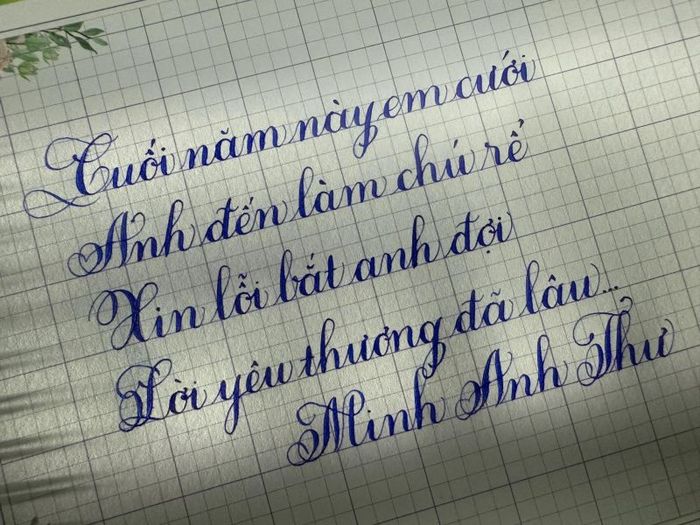 Cuối năm này em cưới
Anh đến làm chú rể
Xin lỗi bắt anh đợi
Lời yêu thương đã lâu...
Minh Anh Thư